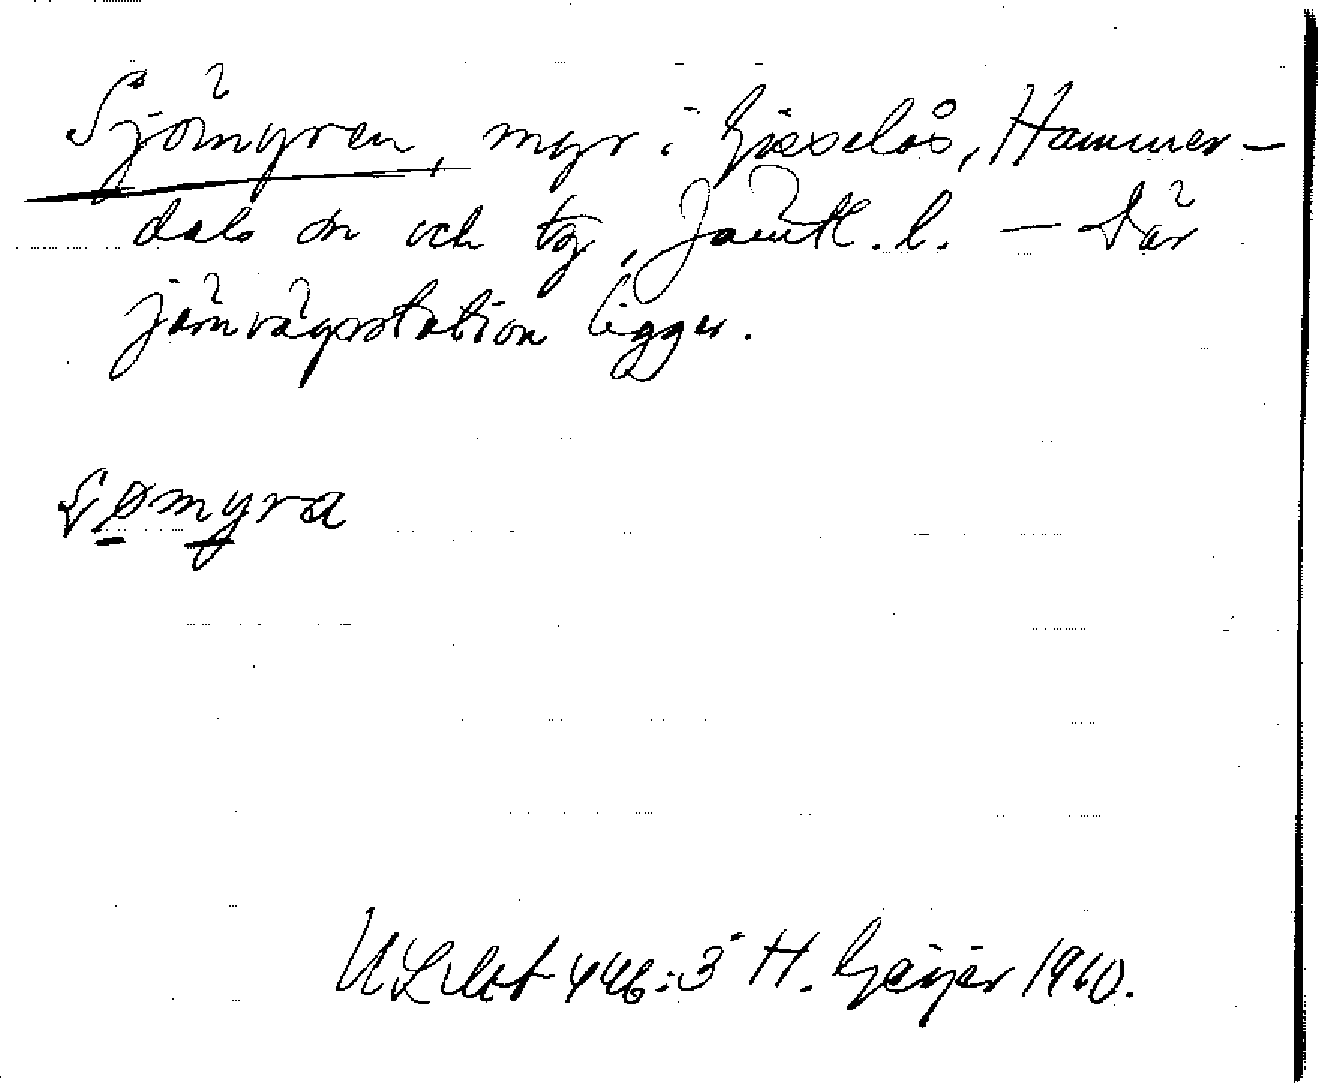 Sjömyren, myr i Gisselås, Hammer-
dals sn och tg, Jämtl. l. — Där
järnvägsstation ligger.
sømyra
446:3 H. Geijer 1960.